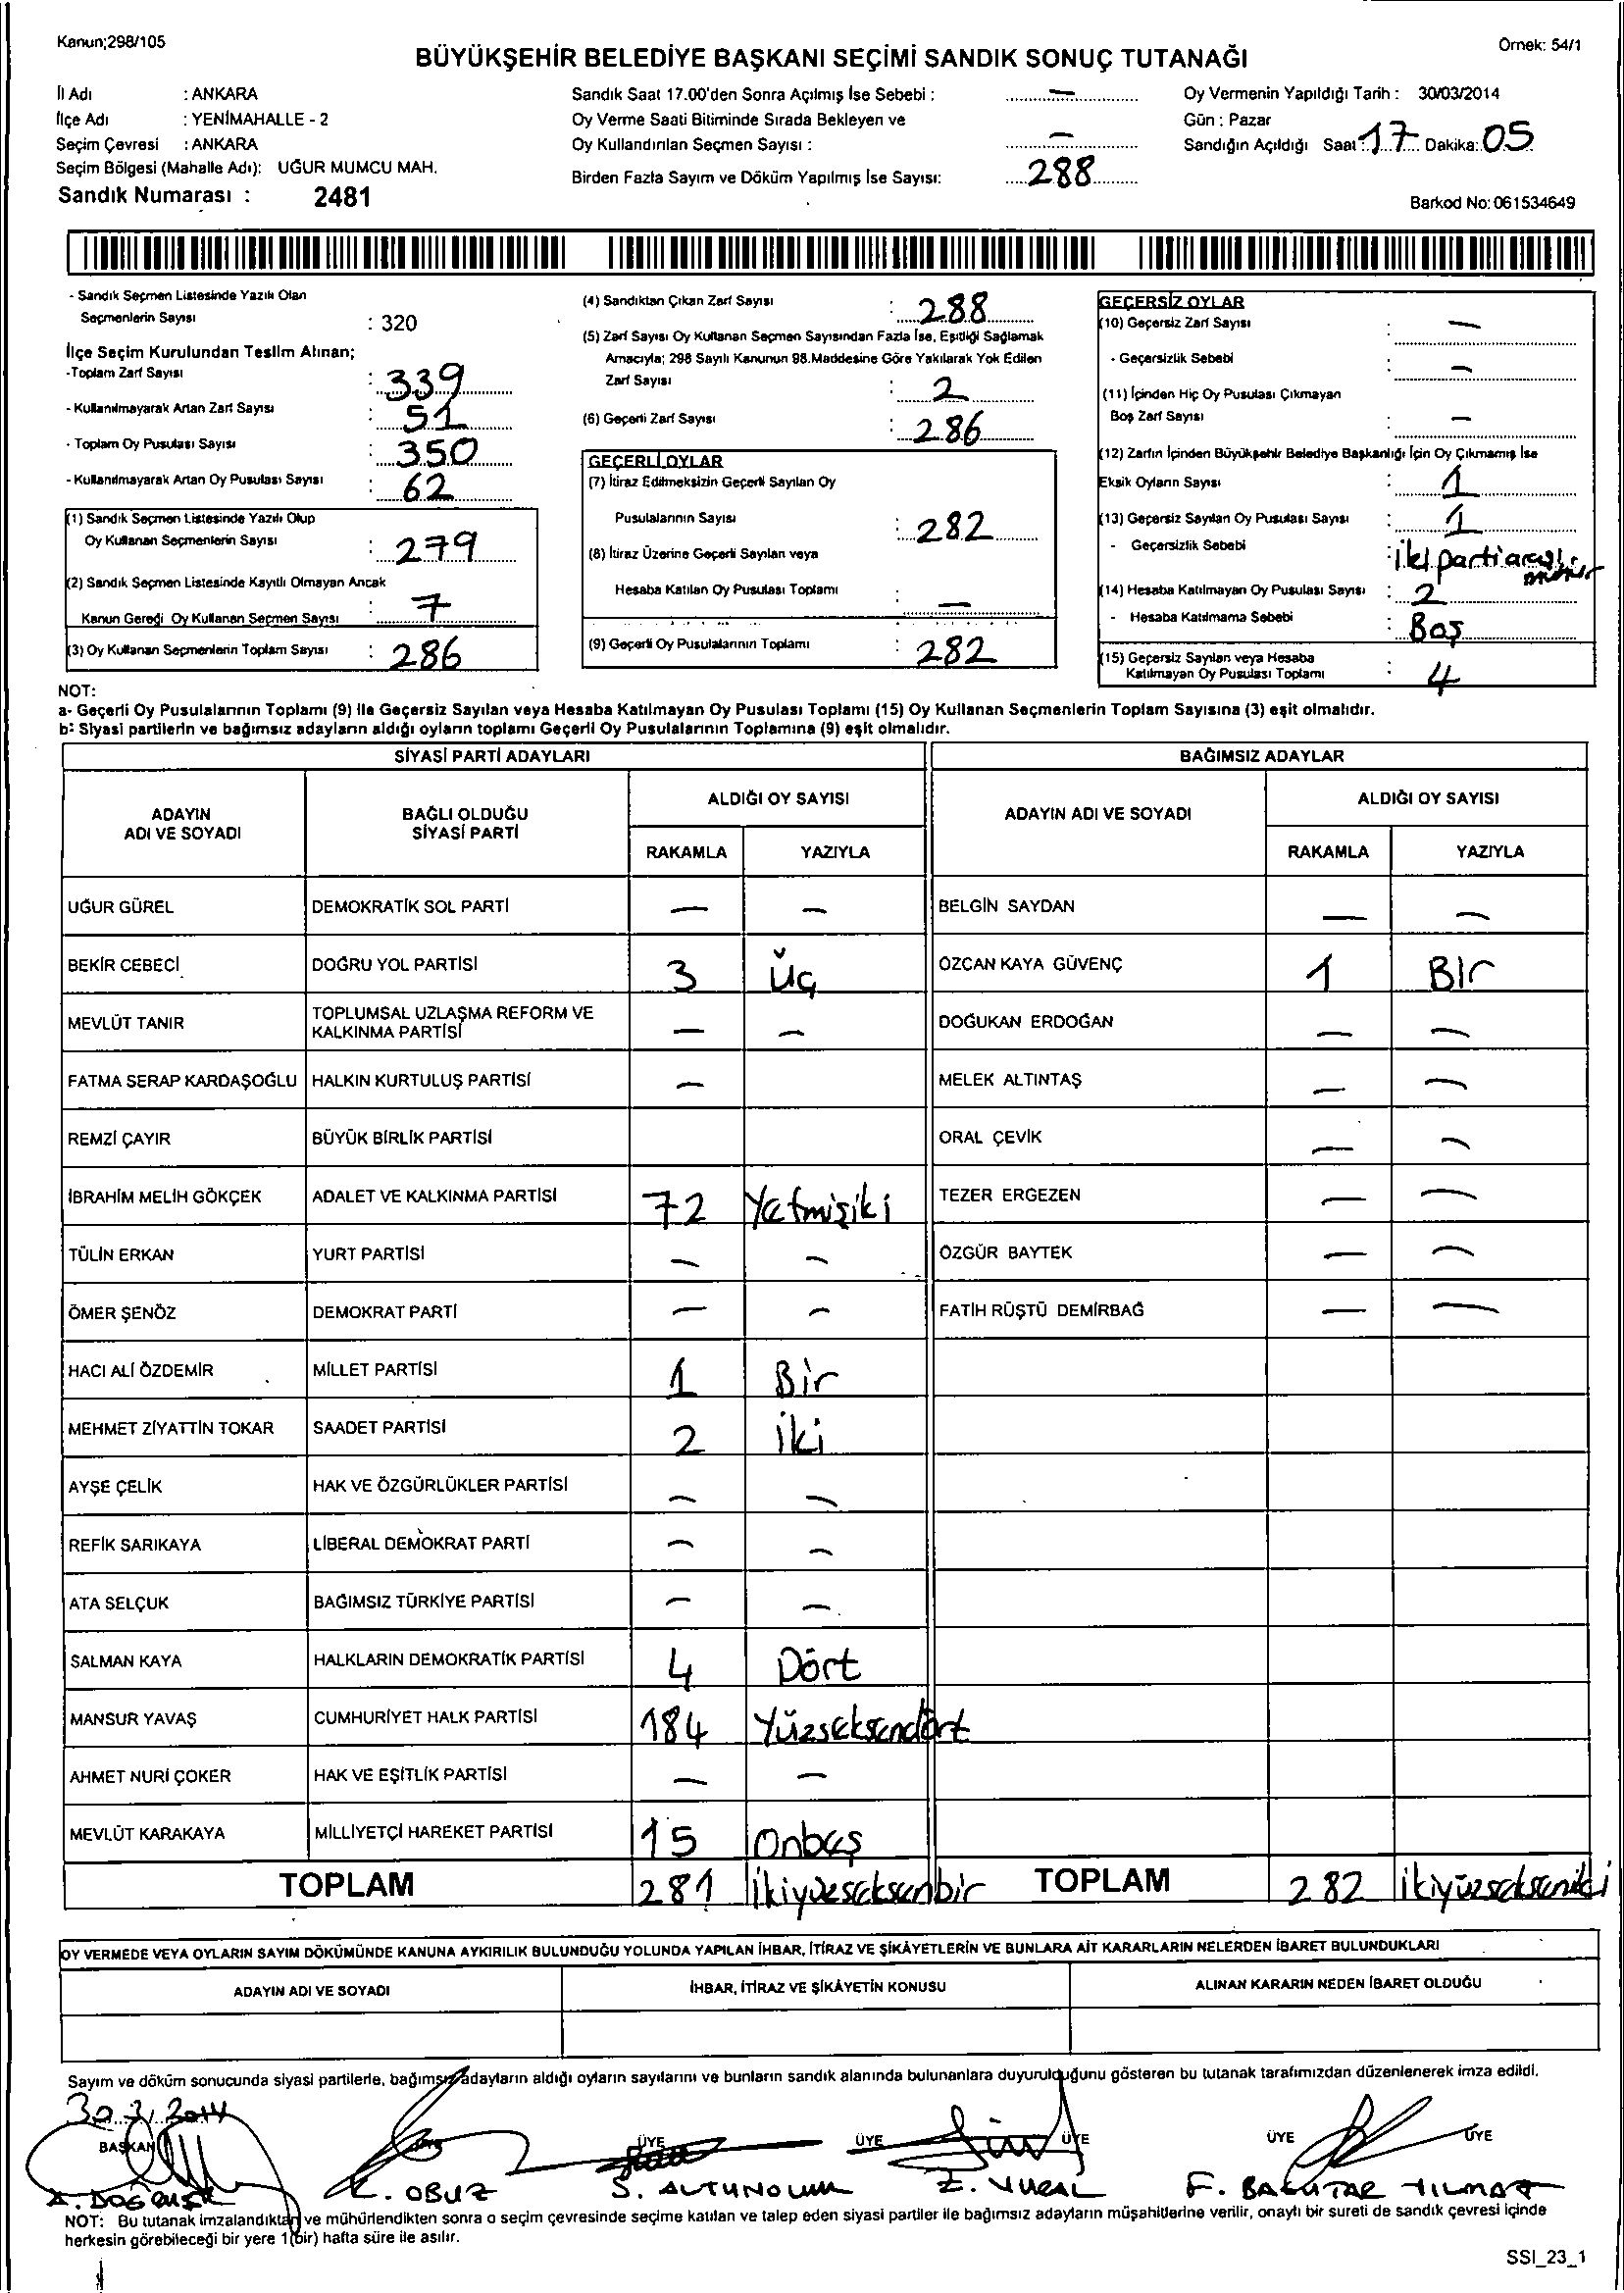 Kanun;298/105
Örnek: 54/1
BÜYÜKŞEHİR BELEDİYE BAŞKANI SEÇİMİ SANDIK SONUÇ TUTANAĞI
İl Adı : ANKARA
İlçe Adı : YENİMAHALLE - 2
Seçim Çevresi : ANKARA
Seçim Bölgesi (Mahalle Adı): UĞUR MUMCU MAH.
Sandık Numarası : 2481
Sandık Saat 17.00'den Sonra Açılmış İse Sebebi : —
Oy Verme Saati Bitiminde Sırada Bekleyen ve
Oy Kullandırılan Seçmen Sayısı : —
Birden Fazla Sayım ve Döküm Yapılmış İse Sayısı: 288
Oy Vermenin Yapıldığı Tarih : 30/03/2014
Gün : Pazar
Sandığın Açıldığı Saat : 17 Dakika: 05
Barkod No: 061534649
- Sandık Seçmen Listesinde Yazılı Olan
Seçmenlerin Sayısı : 320
İlçe Seçim Kurulundan Teslim Alınan;
-Toplam Zarf Sayısı : 339
- Kullanılmayarak Artan Zarf Sayısı : 51
- Toplam Oy Pusulası Sayısı : 350
- Kullanılmayarak Artan Oy Pusulası Sayısı : 62
(1) Sandık Seçmen Listesinde Yazılı Olup
Oy Kullanan Seçmenlerin Sayısı : 279
(2) Sandık Seçmen Listesinde Kayıtlı Olmayan Ancak
Kanun Gereği Oy Kullanan Seçmen Sayısı : 7
(3) Oy Kullanan Seçmenlerin Toplam Sayısı : 286
(4) Sandıktan Çıkan Zarf Sayısı : 288
(5) Zarf Sayısı Oy Kullanan Seçmen Sayısından Fazla İse, Eşitliği Sağlamak
Amacıyla; 298 Sayılı Kanunun 98.Maddesine Göre Yakılarak Yok Edilen
Zarf Sayısı : 2
(6) Geçerli Zarf Sayısı : 286
GEÇERLİ OYLAR
(7) İtiraz Edilmeksizin Geçerli Sayılan Oy
Pusulalarının Sayısı : 282
(8) İtiraz Üzerine Geçerli Sayılan veya
Hesaba Katılan Oy Pusulası Toplamı : —
(9) Geçerli Oy Pusulalarının Toplamı : 282
GEÇERSİZ OYLAR
(10) Geçersiz Zarf Sayısı : —
- Geçersizlik Sebebi : —
(11) İçinden Hiç Oy Pusulası Çıkmayan
Boş Zarf Sayısı : —
(12) Zarfın İçinden Büyükşehir Belediye Başkanlığı İçin Oy Çıkmamış İse
Eksik Oyların Sayısı : 1
(13) Geçersiz Sayılan Oy Pusulası Sayısı : 1
- Geçersizlik Sebebi : İki parti arası mühür
(14) Hesaba Katılmayan Oy Pusulası Sayısı : 2
- Hesaba Katılmama Sebebi : Boş
(15) Geçersiz Sayılan veya Hesaba
Katılmayan Oy Pusulası Toplamı : 4
NOT:
a- Geçerli Oy Pusulalarının Toplamı (9) ile Geçersiz Sayılan veya Hesaba Katılmayan Oy Pusulası Toplamı (15) Oy Kullanan Seçmenlerin Toplam Sayısına (3) eşit olmalıdır.
b- Siyasi partilerin ve bağımsız adayların aldığı oyların toplamı Geçerli Oy Pusulalarının Toplamına (9) eşit olmalıdır.
SİYASİ PARTİ ADAYLARI BAĞIMSIZ ADAYLAR
ADAYIN ADI VE SOYADI BAĞLI OLDUĞU SİYASİ PARTİ ALDIĞI OY SAYISI ADAYIN ADI VE SOYADI ALDIĞI OY SAYISI
RAKAMLA YAZIYLA RAKAMLA YAZIYLA
UĞUR GÜREL DEMOKRATİK SOL PARTİ — — BELGİN SAYDAN — —
BEKİR CEBECİ DOĞRU YOL PARTİSİ 3 Üç ÖZCAN KAYA GÜVENÇ 1 BİR
MEVLÜT TANIR TOPLUMSAL UZLAŞMA REFORM VE KALKINMA PARTİSİ — — DOĞUKAN ERDOĞAN — —
FATMA SERAP KARDAŞOĞLU HALKIN KURTULUŞ PARTİSİ — MELEK ALTINTAŞ — —
REMZİ ÇAYIR BÜYÜK BİRLİK PARTİSİ ORAL ÇEVİK — —
İBRAHİM MELİH GÖKÇEK ADALET VE KALKINMA PARTİSİ 72 Yetmişiki TEZER ERGEZEN — —
TÜLİN ERKAN YURT PARTİSİ — — ÖZGÜR BAYTEK — —
ÖMER ŞENÖZ DEMOKRAT PARTİ — — FATİH RÜŞTÜ DEMİRBAĞ — —
HACI ALİ ÖZDEMİR MİLLET PARTİSİ 1 Bir
MEHMET ZİYATTİN TOKAR SAADET PARTİSİ 2 İki
AYŞE ÇELİK HAK VE ÖZGÜRLÜKLER PARTİSİ — —
REFİK SARIKAYA LİBERAL DEMOKRAT PARTİ — —
ATA SELÇUK BAĞIMSIZ TÜRKİYE PARTİSİ — —
SALMAN KAYA HALKLARIN DEMOKRATİK PARTİSİ 4 Dört
MANSUR YAVAŞ CUMHURİYET HALK PARTİSİ 184 Yüzseksendört
AHMET NURİ ÇOKER HAK VE EŞİTLİK PARTİSİ — —
MEVLÜT KARAKAYA MİLLİYETÇİ HAREKET PARTİSİ 15 Onbeş
TOPLAM 281 İkiyüzseksenbir TOPLAM 282 ikiyüzsekseniki
OY VERMEDE VEYA OYLARIN SAYIM DÖKÜMÜNDE KANUNA AYKIRILIK BULUNDUĞU YOLUNDA YAPILAN İHBAR, İTİRAZ VE ŞİKÂYETLERİN VE BUNLARA AİT KARARLARIN NELERDEN İBARET BULUNDUKLARI
ADAYIN ADI VE SOYADI İHBAR, İTİRAZ VE ŞİKÂYETİN KONUSU ALINAN KARARIN NEDEN İBARET OLDUĞU
Sayım ve döküm sonucunda siyasi partilerle, bağımsız adayların aldığı oyların sayılarını ve bunların sandık alanında bulunanlara duyurulduğunu gösteren bu tutanak tarafımızdan düzenlenerek imza edildi.
30.3.2014
BAŞKAN ÜYE ÜYE ÜYE ÜYE ÜYE
K. OBUZ Z. VURAL
NOT: Bu tutanak imzalandıktan ve mühürlendikten sonra o seçim çevresinde seçime katılan ve talep eden siyasi partiler ile bağımsız adayların müşahitlerine verilir, onaylı bir sureti de sandık çevresi içinde
herkesin görebileceği bir yere 1(bir) hafta süre ile asılır.
SSI_23_1